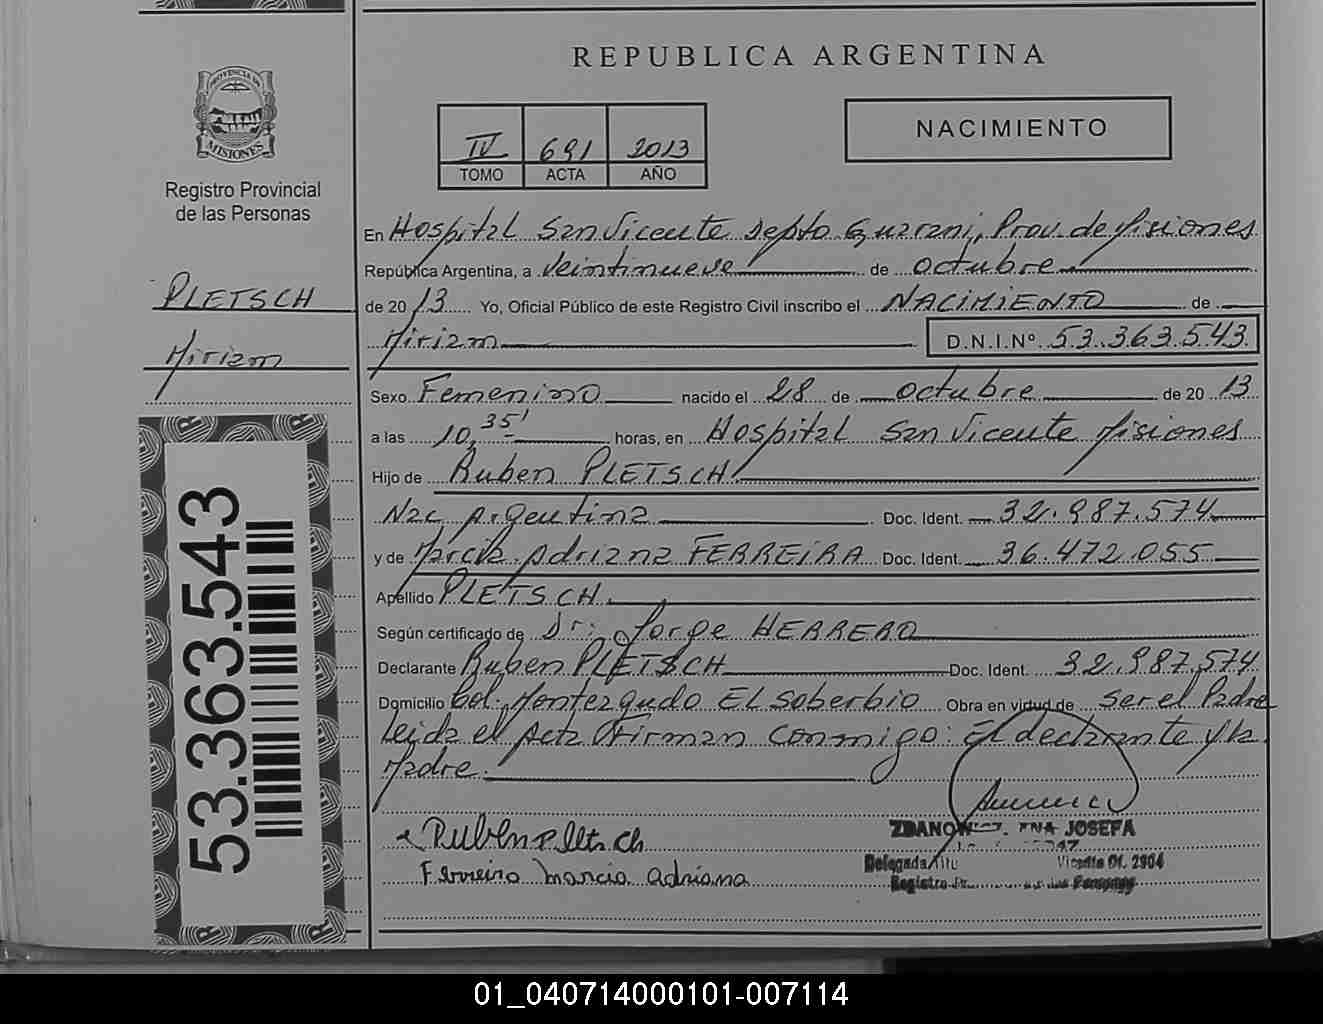 REPUBLICA ARGENTINA
PROVINCIA DE
MISIONES
Registro Provincial
de las Personas
IV 691 2013
TOMO ACTA AÑO
NACIMIENTO
PLETSCH
Miriam
53.363.543
En Hospital San Vicente Depto Guarani, Prov. de Misiones
República Argentina, a veintinueve de octubre
de 2013 Yo, Oficial Público de este Registro Civil inscribo el NACIMIENTO de
Miriam D.N.I.Nº 53.363.543
Sexo Femenino nacido el 28 de octubre de 2013
a las 10,35' horas, en Hospital San Vicente Misiones
Hijo de Ruben PLETSCH
Nac Argentina Doc. Ident. 32.987.574
y de Marcia Adriana FERREIRA Doc. Ident. 36.472.055
Apellido PLETSCH.
Según certificado de Dr: Jorge HERRERO
Declarante Ruben PLETSCH Doc. Ident. 32.987.574
Domicilio Col. Monteagudo El Soberbio Obra en virtud de ser el Padre
Leida el Acta Firman conmigo: El declarante y la
Madre.
Ruben Pletsch
Ferreira Marcia adriana
JOSEFA
Delegada Vicente Of. 2904
Registro de las Personas
01_040714000101-007114